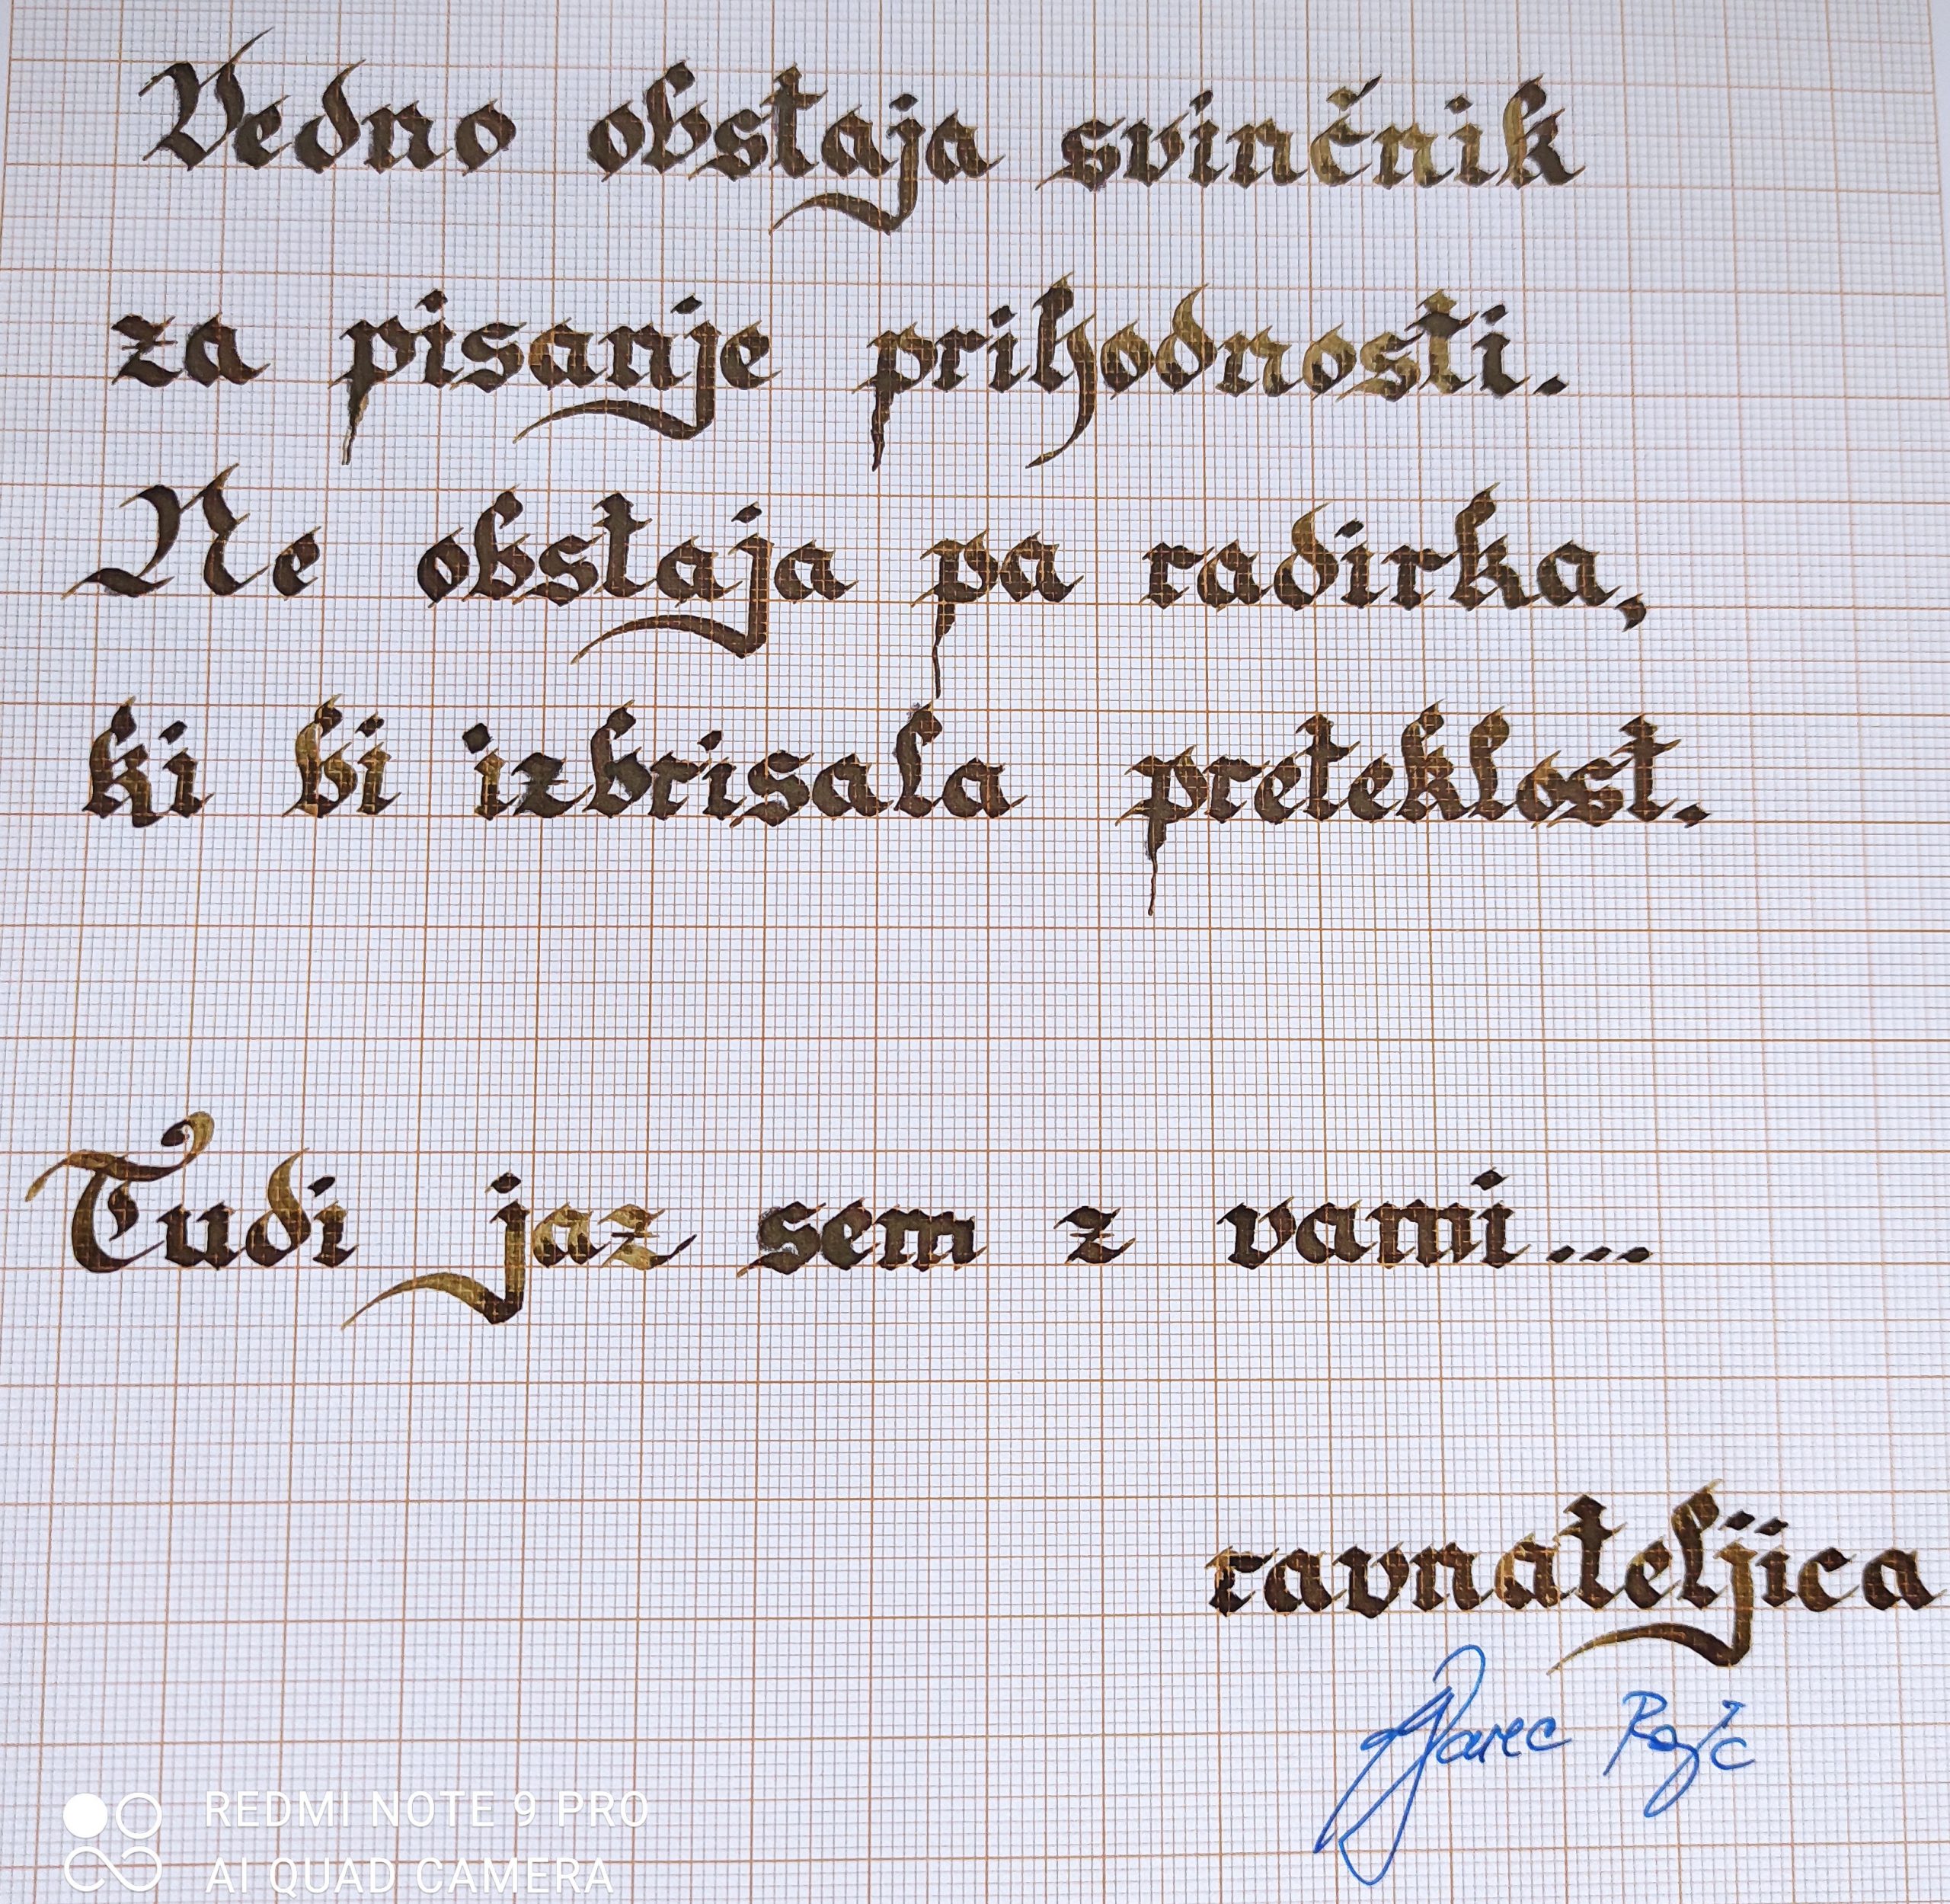 Vedno obstaja svinčnik
za pisanje prihodnosti.
Ne obstaja pa radirka,
ki bi izbrisala preteklost.
Tudi jaz sem z vami...
ravnateljica
REDMI NOTE 9 PRO
AI QUAD CAMERA